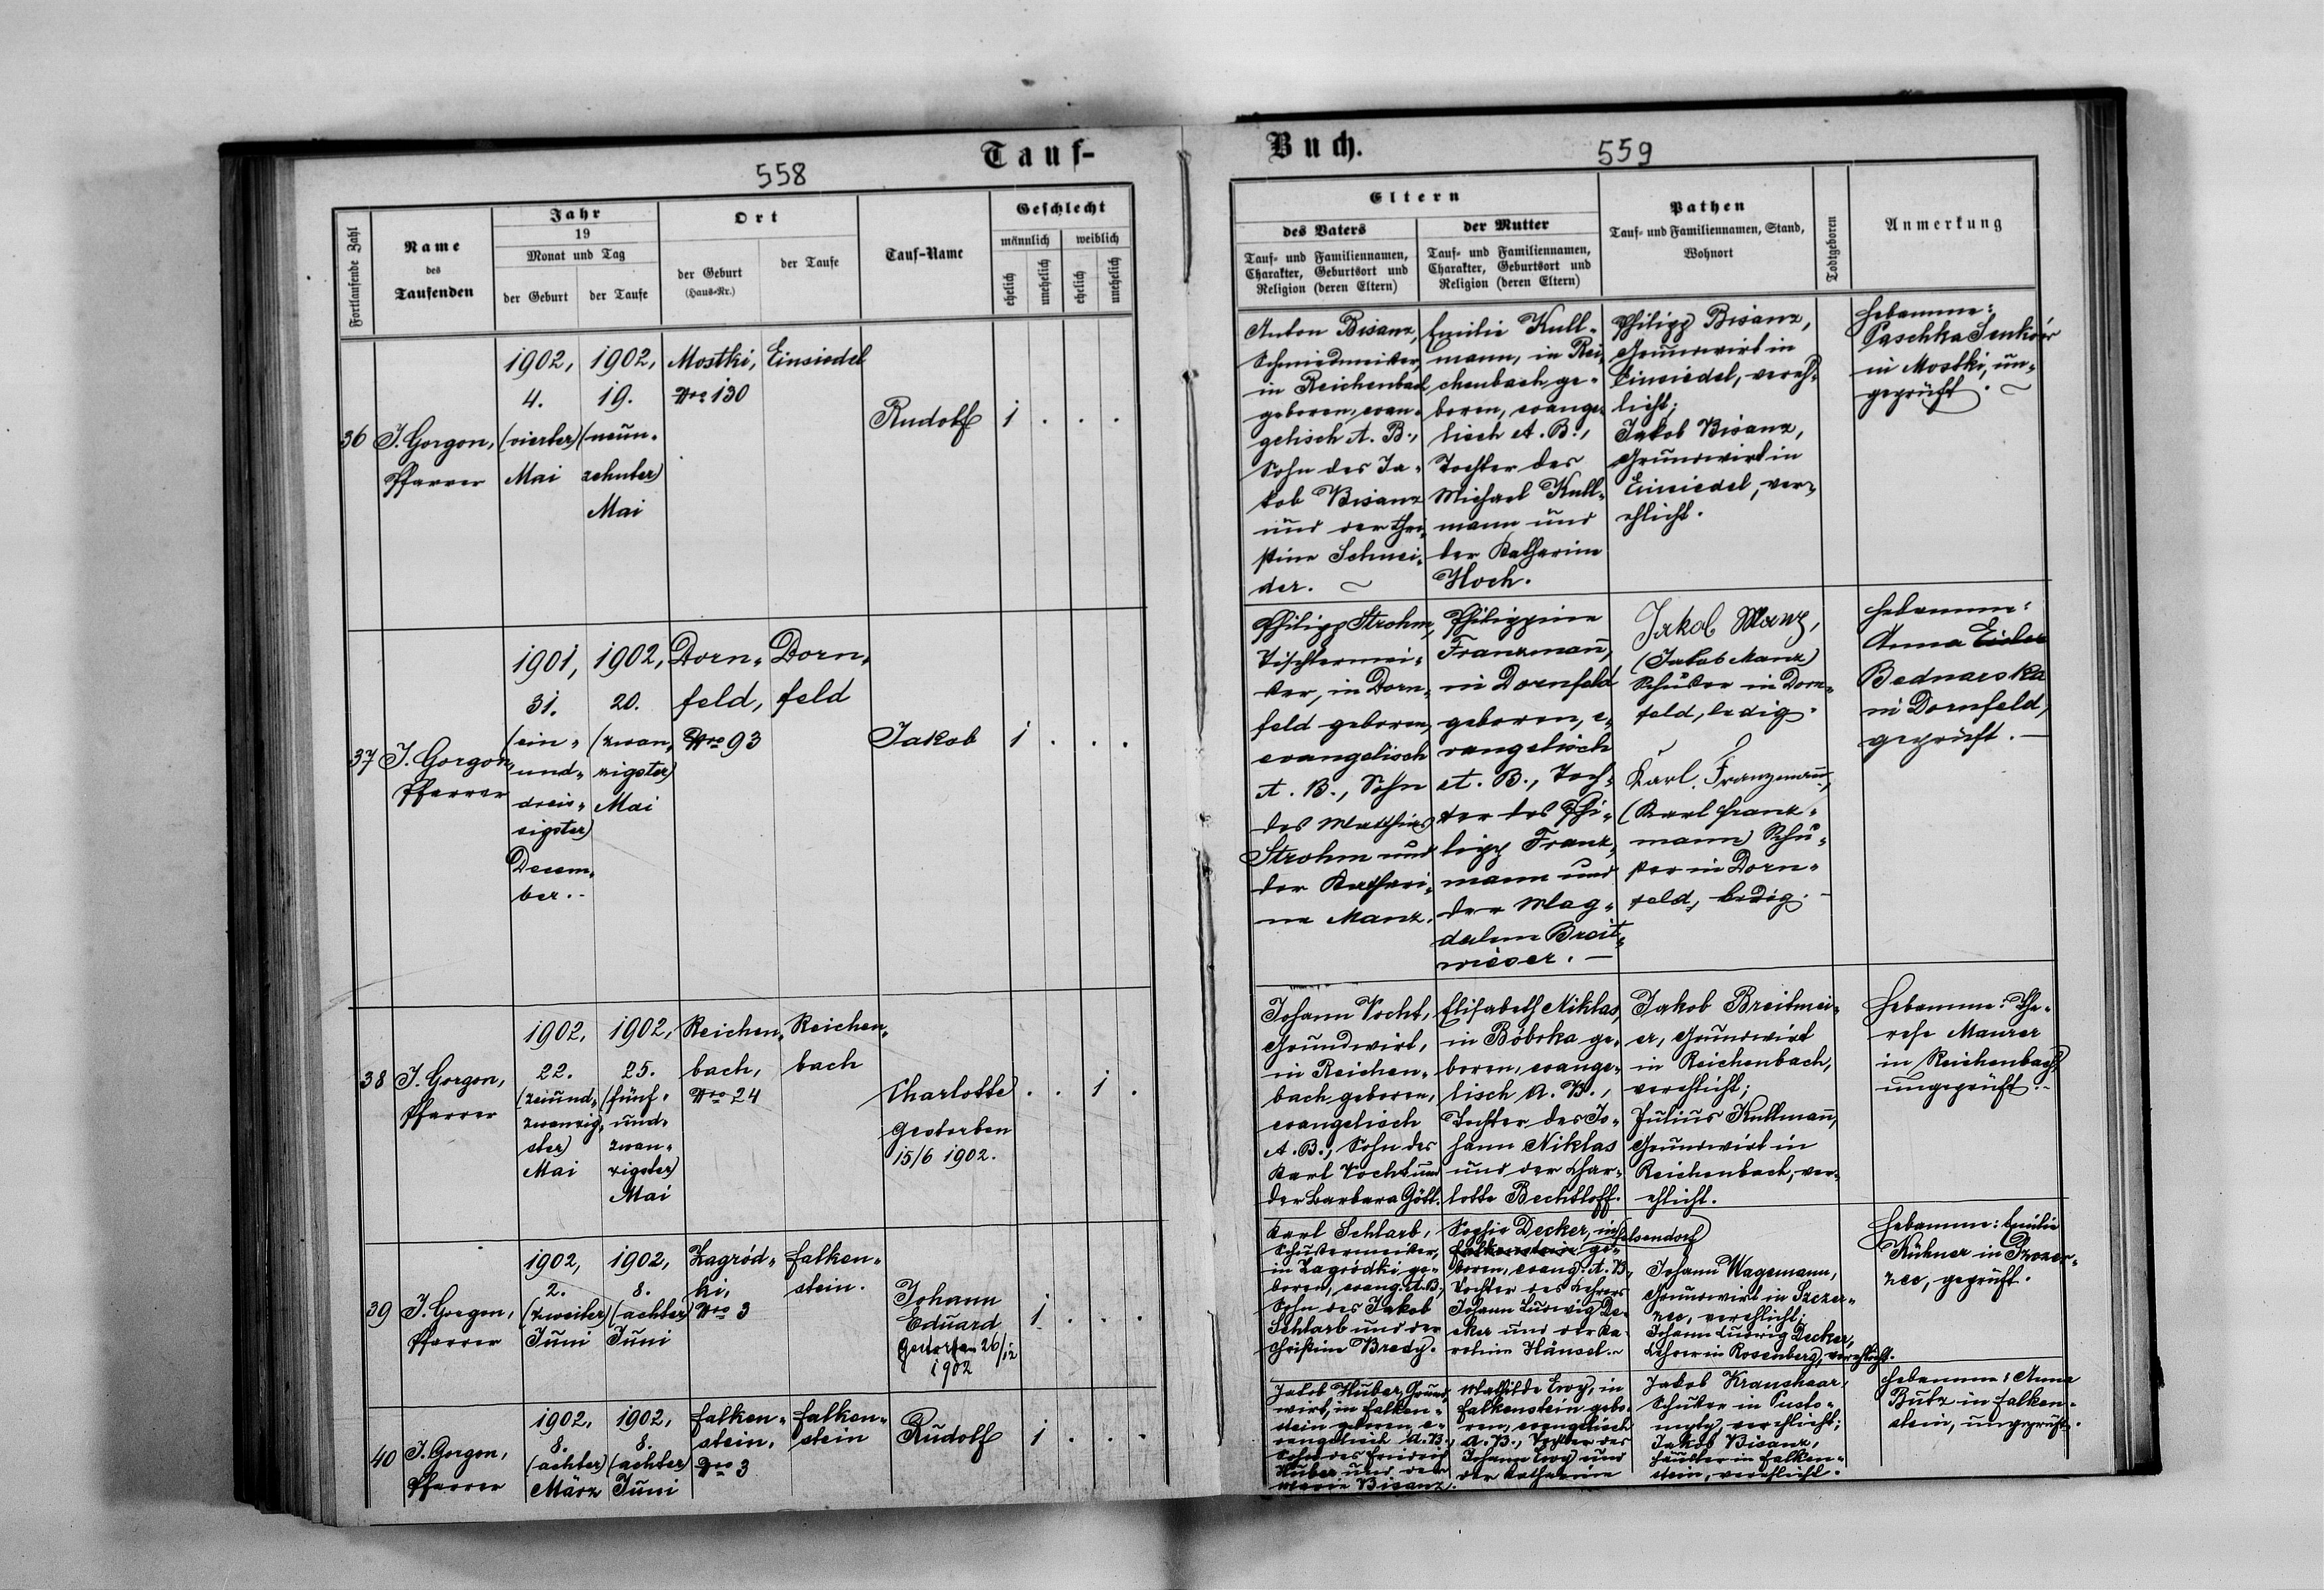 558
Tauf-
Fortlaufende Zahl
Name
des
Taufenden
Jahr
19
Monat und Tag
der Geburt
der Taufe
Ort
der Geburt
(Haus-Nr.)
der Taufe
Tauf-Name
Geschlecht
männlich
weiblich
ehelich
unehelich
ehelich
unehelich
36
J. Gorgon,
Pfarrer
1902,
4.
(vierter)
Mai
1902,
19.
(neun-
zehnter)
Mai
Mostki,
Nro 130
Einsiedel
Rudolf
1 . . .
37
J. Gorgon,
Pfarrer
1901,
31.
(ein-
und-
dreis-
sigster)
Decem-
ber.-
1902,
20.
(zwan-
zigster)
Mai
Dorn-
feld,
Nro 93
Dorn-
feld
Jakob
1 . . .
38
J. Gorgon,
Pfarrer
1902,
22.
(zeiund-
zwanzig-
ster)
Mai
1902,
25.
(fünf-
und-
zwan-
zigster)
Mai
Reichen-
bach,
Nro 24
Reichen-
bach
Charlotte
gestorben
15/6 1902.
. . 1 .
39
J. Gorgon,
Pfarrer
1902,
2.
(zweiter)
Juni
1902,
8.
(achter)
Juni
Zagród-
ki,
Nro 3
Falken-
stein.
Johann
Eduard
Gestorben 26/12
1902
1 . . .
40
J. Gorgon,
Pfarrer
1902,
8.
(achter)
März
1902,
8.
(achter)
Juni
Falken-
stein,
Nro 3
Falken-
stein
Rudolf
1 . . .
Buch.
559
Eltern
des Vaters
Tauf- und Familiennamen,
Charakter, Geburtsort und
Religion (deren Eltern)
der Mutter
Tauf- und Familiennamen,
Charakter, Geburtsort und
Religion (deren Eltern)
Pathen
Tauf- und Familiennamen, Stand,
Wohnort
Todtgeboren
Anmerkung
Anton Bisanz,
Schmiedmeister,
in Reichenbach
geboren, evan-
gelisch A. B.,
Sohn des Ja-
kob Bisanz
und der Chri-
stine Schnei-
der.
Emilie Kull-
mann, in Rei-
chenbach ge-
boren, evange-
lisch A. B.,
Tochter des
Michael Kull-
mann und
der Katharina
Hoch.
Philipp Bisanz,
Grundwirt in
Einsiedel, vereh-
licht;
Jakob Bisanz,
Grundwirt in
Einsiedel, ver-
ehlicht.
Hebamme:
Paschka Senków
in Mostki, un-
geprüft.
Philipp Strohm,
Tischlermei-
ster, in Dorn-
feld geboren,
evangelisch
A. B., Sohn
des Mathias
Strohm und
der Kathari-
na Manz.
Philippine
Franzmann,
in Dornfeld
geboren, e-
vangelisch
A. B., Toch-
ter des Phi-
lipp Franz-
mann und
der Mag-
dalena Breit-
wieser.
Jakob Manz,
(Jakob Manz)
Schuster in Dorn-
feld, ledig.
Karl Franzmann,
(Karl Franz-
mann) Schu-
ster in Dorn-
feld, ledig.
Hebamme:
Anna
Bednarska
in Dornfeld,
geprüft.
Johann Vocht,
Grundwirt,
in Reichen-
bach geboren,
evangelisch
A. B., Sohn des
Karl Vocht und
der Barbara Gött.
Elisabeth Niklas,
in Bóbrka ge-
boren, evange-
lisch A. B.,
Tochter des Jo-
hann Niklas
und der Char-
lotte Bechtloff.
Jakob Breitmei-
er, Grundwirt
in Reichenbach,
verehlicht;
Julius Kullmann,
Grundwirt in
Reichenbach, ver-
ehlicht.
Hebamme: The-
rese Maurer
in Reichenbach,
ungeprüft.
Karl Schlarb,
Schustermeister,
in Zagródki ge-
boren, evang. A.B.
Sohn des Jakob
Schlarb und der
Christine Bredy.
Sophie Decker, in Felsendorf
Falkenstein ge-
boren, evang. A. B.,
Tochter des Lehrers
Johann Ludwig De-
cker und der Ka-
roline Hänsel.
Johann Wagemann,
Grundwirt in Szczer-
zec, verehlicht;
Johann Ludwig Decker,
Lehrer in Rosenberg, verehlicht.
Hebamme: Emilie
Kühner in Szczer-
zec, geprüft.
Jakob Huber, Grund-
wirt, in Falken-
stein geboren, e-
vangelisch A. B.,
Sohn des Friedrich
Huber und der
Maria Bisanz.
Mathilde Ewy, in
Falkenstein gebo-
ren, evangelisch
A. B., Tochter des
Johann Ewy und
der Katharina
Jakob Kranshaar,
Schuster in Pusto-
myty, verehlicht;
Jakob Bisanz,
Häusler in Falken-
stein, verehlicht.
Hebamme: Anna
Butz in Falken-
stein, ungeprüft.